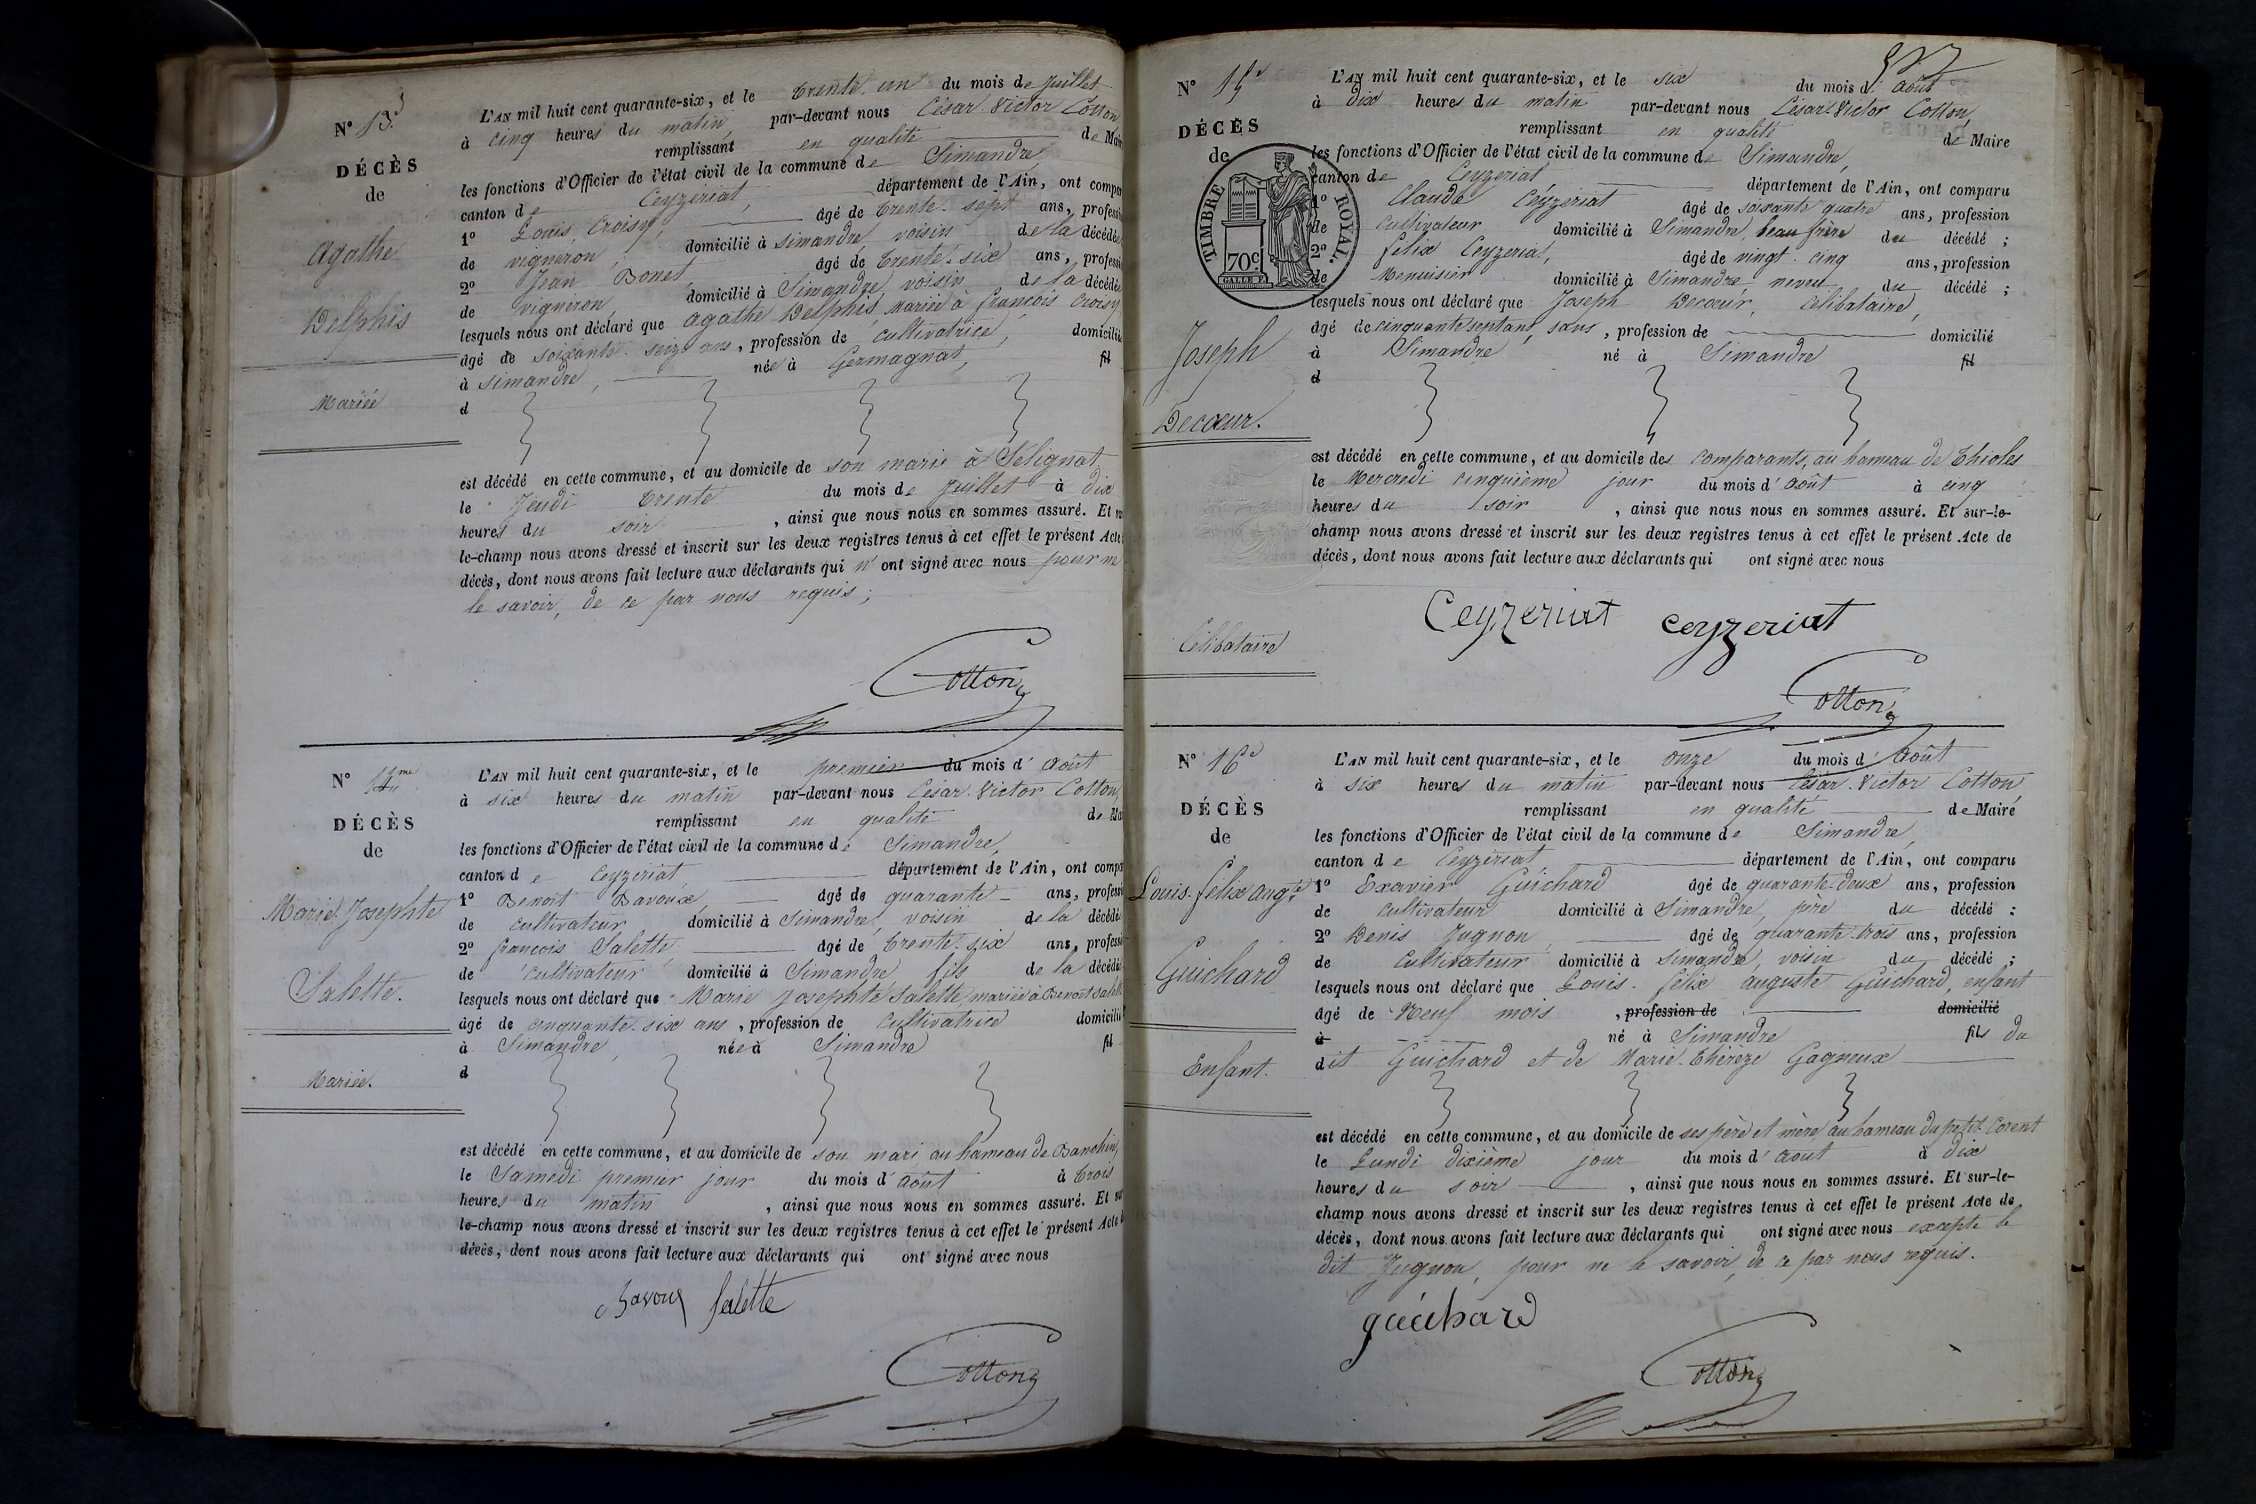 N° 13
DÉCÈS
de
Agathe
Delphis
Mariée
L'AN mil huit cent quarante-six, et le trente un du mois de Juillet
à cinq heures du matin par-devant nous César Victor Cotton,
remplissant en qualité de Maire
les fonctions d'Officier de l'état civil de la commune de Simandre,
canton de Ceyzeriat, département de l'Ain, ont compar
1° Louis Croisy, âgé de trente-sept ans, professi
de vigneron, domicilié à Simandre, voisin de la décédée
2° Jean Bonet, âgé de trente-six ans, professi
de vigneron, domicilié à Simandre, voisin de la décédée
lesquels nous ont déclaré que Agathe Delphis, mariée à François Croisy,
âgé de soixante-seize ans, profession de cultivatrice, domicilié
à Simandre, née à Germagnat, fil
d
est décédé en cette commune, et au domicile de son marie à Sélignat
le Jeudi trente du mois de Juillet à dix
heures du soir, ainsi que nous nous en sommes assuré. Et
le-champ nous avons dressé et inscrit sur les deux registres tenus à cet effet le présent Acte
décès, dont nous avons fait lecture aux déclarants qui n'ont signé avec nous pour ne
le savoir, de ce par nous requis;
Cotton
N° 14me
DÉCÈS
de
Marie Josephte
Salette.
Mariée.
L'AN mil huit cent quarante-six, et le premier du mois d'Août
à six heures du matin par-devant nous César Victor Cotton,
remplissant en qualité de Mai
les fonctions d'Officier de l'état civil de la commune de Simandre,
canton de Ceyzeriat département de l'Ain, ont compar
1° Benoit Bavoux, âgé de quarante ans, professi
de cultivateur domicilié à Simandre, voisin de la décédée
2° François Salette, âgé de trente-six ans, professi
de cultivateur domicilié à Simandre fils de la décédée
lesquels nous ont déclaré que Marie Josephte Salette, mariée à Benoit Salett
âgé de cinquante-six ans, profession de cultivatrice domicilié
à Simandre, née à Simandre fil
d
est décédé en cette commune, et au domicile de son mari au hameau de Banchin,
le Samedi premier jour du mois d'Août à trois
heures du matin, ainsi que nous nous en sommes assuré. Et sur
le-champ nous avons dressé et inscrit sur les deux registres tenus à cet effet le présent Acte d
décès, dont nous avons fait lecture aux déclarants qui ont signé avec nous
Bavoux Salette
Cotton
N° 15e
DÉCÈS
de
TIMBRE ROYAL.
70c
Joseph
Decœur.
Célibataire
L'AN mil huit cent quarante-six, et le six du mois d'Août
à dix heures du matin par-devant nous César Victor Cotton,
remplissant en qualité de Maire
les fonctions d'Officier de l'état civil de la commune de Simandre,
canton de Ceyzeriat département de l'Ain, ont comparu
1° Claude Ceyzeriat âgé de soixante quatre ans, profession
de cultivateur domicilié à Simandre, beau frère du décédé;
2° Felix Ceyzeriat, âgé de vingt-cinq ans, profession
de Menuisier domicilié à Simandre, neveu du décédé;
lesquels nous ont déclaré que Joseph Decœur, célibataire,
âgé de cinquante sept ans, sans, profession de domicilié
à Simandre né à Simandre fil
d
est décédé en cette commune, et au domicile des comparants, au hameau de Thioles
le Mercredi cinquième jour du mois d'Août à cinq
heures du soir, ainsi que nous nous en sommes assuré. Et sur-le-
champ nous avons dressé et inscrit sur les deux registres tenus à cet effet le présent Acte de
décès, dont nous avons fait lecture aux déclarants qui ont signé avec nous
Ceyzeriat ceyzeriat
Cotton
N° 16e
DÉCÈS
de
Louis-felix augte
Guichard
Enfant.
L'AN mil huit cent quarante-six, et le onze du mois d'Août
à six heures du matin par-devant nous César Victor Cotton
remplissant en qualité de Maire
les fonctions d'Officier de l'état civil de la commune de Simandre,
canton de Ceyzeriat, département de l'Ain, ont comparu
1° Exavier Guichard âgé de quarante-deux ans, profession
de cultivateur domicilié à Simandre, père du décédé;
2° Denis Jugnon, âgé de quarante-trois ans, profession
de cultivateur domicilié à Simandre, voisin du décédé;
lesquels nous ont déclaré que Louis-félix auguste Guichard, enfant
âgé de Neuf mois, profession de domicilié
à né à Simandre fils du
dit Guichard et de Marie-Thérèze Gagneux
est décédé en cette commune, et au domicile de ses père et mère, au hameau du petit Corent
le Lundi dixième jour du mois d'Août à dix
heures du soir, ainsi que nous nous en sommes assuré. Et sur-le-
champ nous avons dressé et inscrit sur les deux registres tenus à cet effet le présent Acte de
décès, dont nous avons fait lecture aux déclarants qui ont signé avec nous excepté le
dit Jugnon, pour ne le savoir, de ce par nous requis.
guichard
Cotton